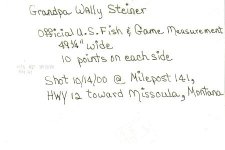 Grandpa Wally Steiner
Official U.S. Fish & Game Measurement
49 1/8" wide
10 points on each side
Shot 10/14/00 @ Milepost 141,
HWY 12 toward Missoula, Montana